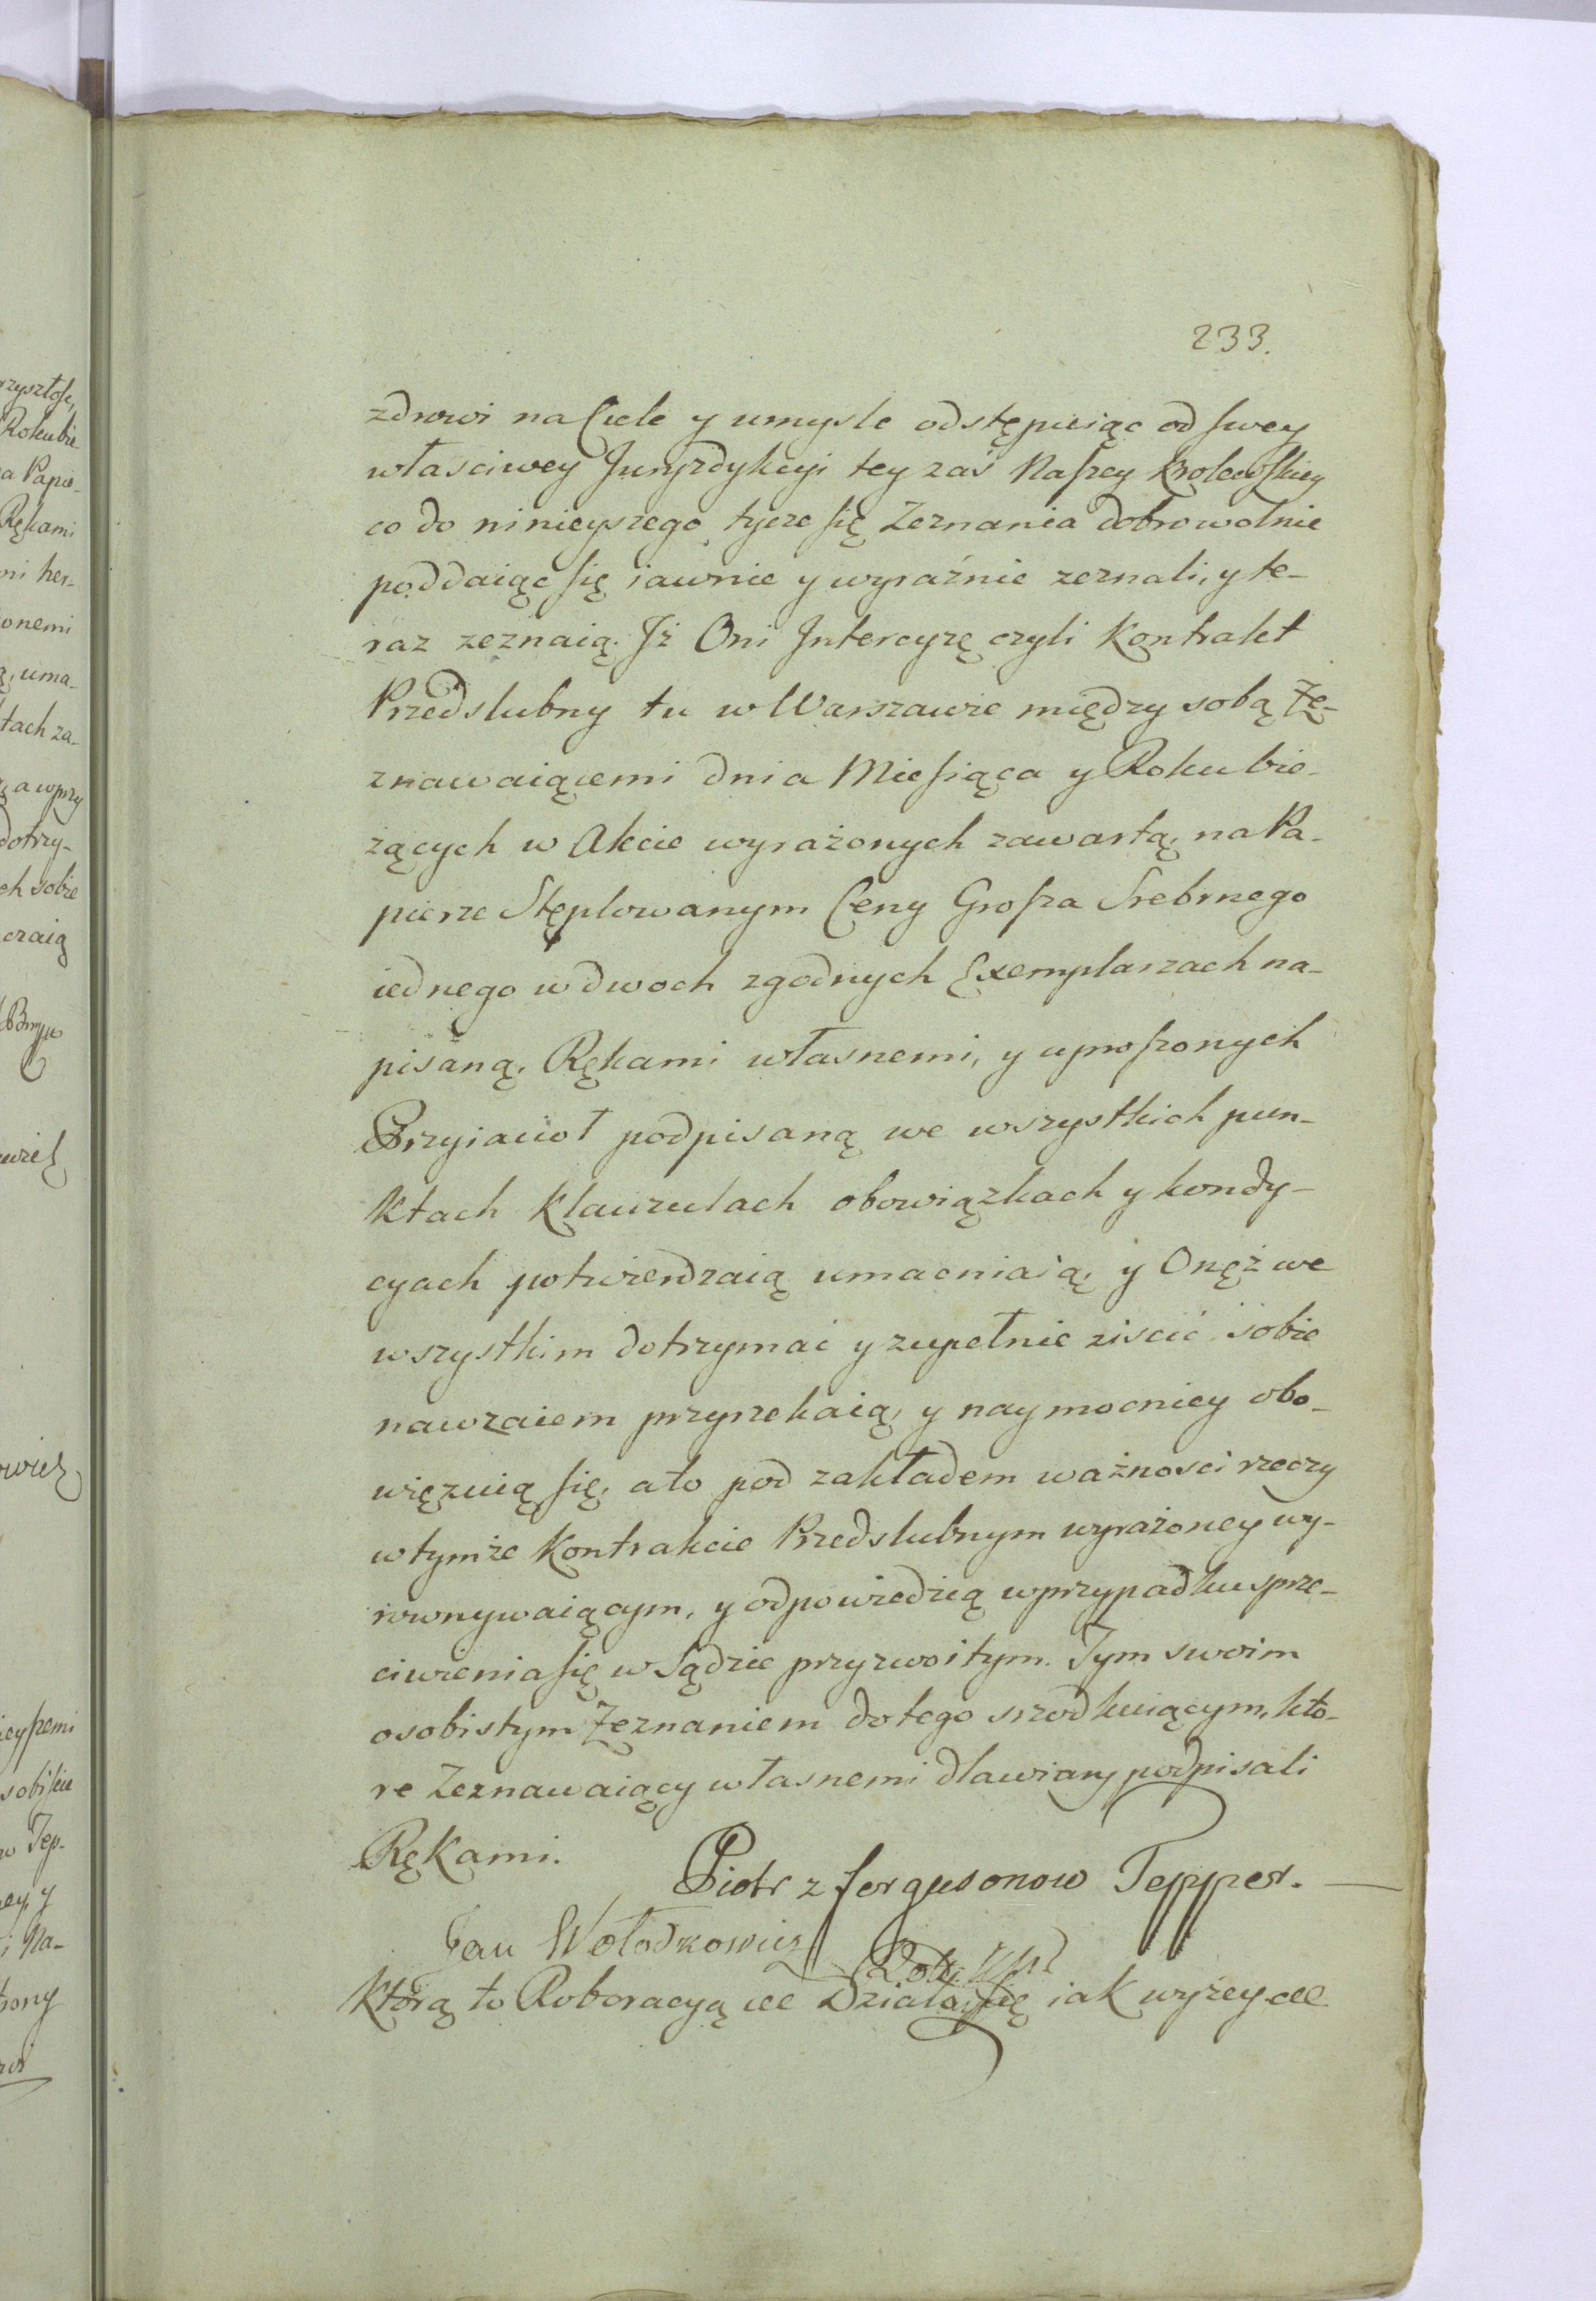 233.
zdrowi na Ciele y umysle odstępuiąc od swey
własciwey Juryzdykcyi tey zaś Naszey Krolewskiey
co do ninieyszego tycze się Zeznania dobrowolnie
poddaiąc się iawnie y wyraźnie zeznali, y te-
raz zeznaią. Jż Oni Intercyzę czyli Kontrakt
Przedslubny tu w Warszawie między sobą Ze-
znawaiącemi dnia Miesiąca y Roku bie-
żących w Akcie wyrażonych zawartą, na Pa-
pierze Stęplowanym Ceny Grosza Srebrnego
iednego w dwoch zgodnych Exemplarzach na-
pisaną, Rękami własnemi, y uproszonych
Przyiacioł podpisaną we wszystkich pun-
ktach Klauzulach obowiązkach y kondy-
cyach potwierdzaią umacniaią, y Onęż we
wszystkim dotrzymać y zupełnie ziscić sobie
nawzaiem przyrzekaią, y naymocniey obo-
więzuią się, a to pod zakładem ważnosci rzeczy
w tymże Kontrakcie Przedslubnym wyrażoney wy-
rownywaiącym, y odpowiedzią w przypadku sprze-
ciwienia się w Sądzie przyzwoitym. Tym swoim
osobistym Zeznaniem do tego srzodkuiącym, kto-
re Zeznawaiący własnemi dla wiary podpisali
Rękami.
Piotr z fergusonow Tepper.
Jan Wołodkowicz
Którą to Roboracyą ut Działa się iak wyżey ut
rzysztof,
Roku bie
na Papie-
Rękami
mi her-
ionemi
ą, uma-
tach za-
a w przy
dotrzy-
ch sobie
czaią
wicz
ieyszemi
sobiscie
w Tep-
ey, y
i Na-
trony